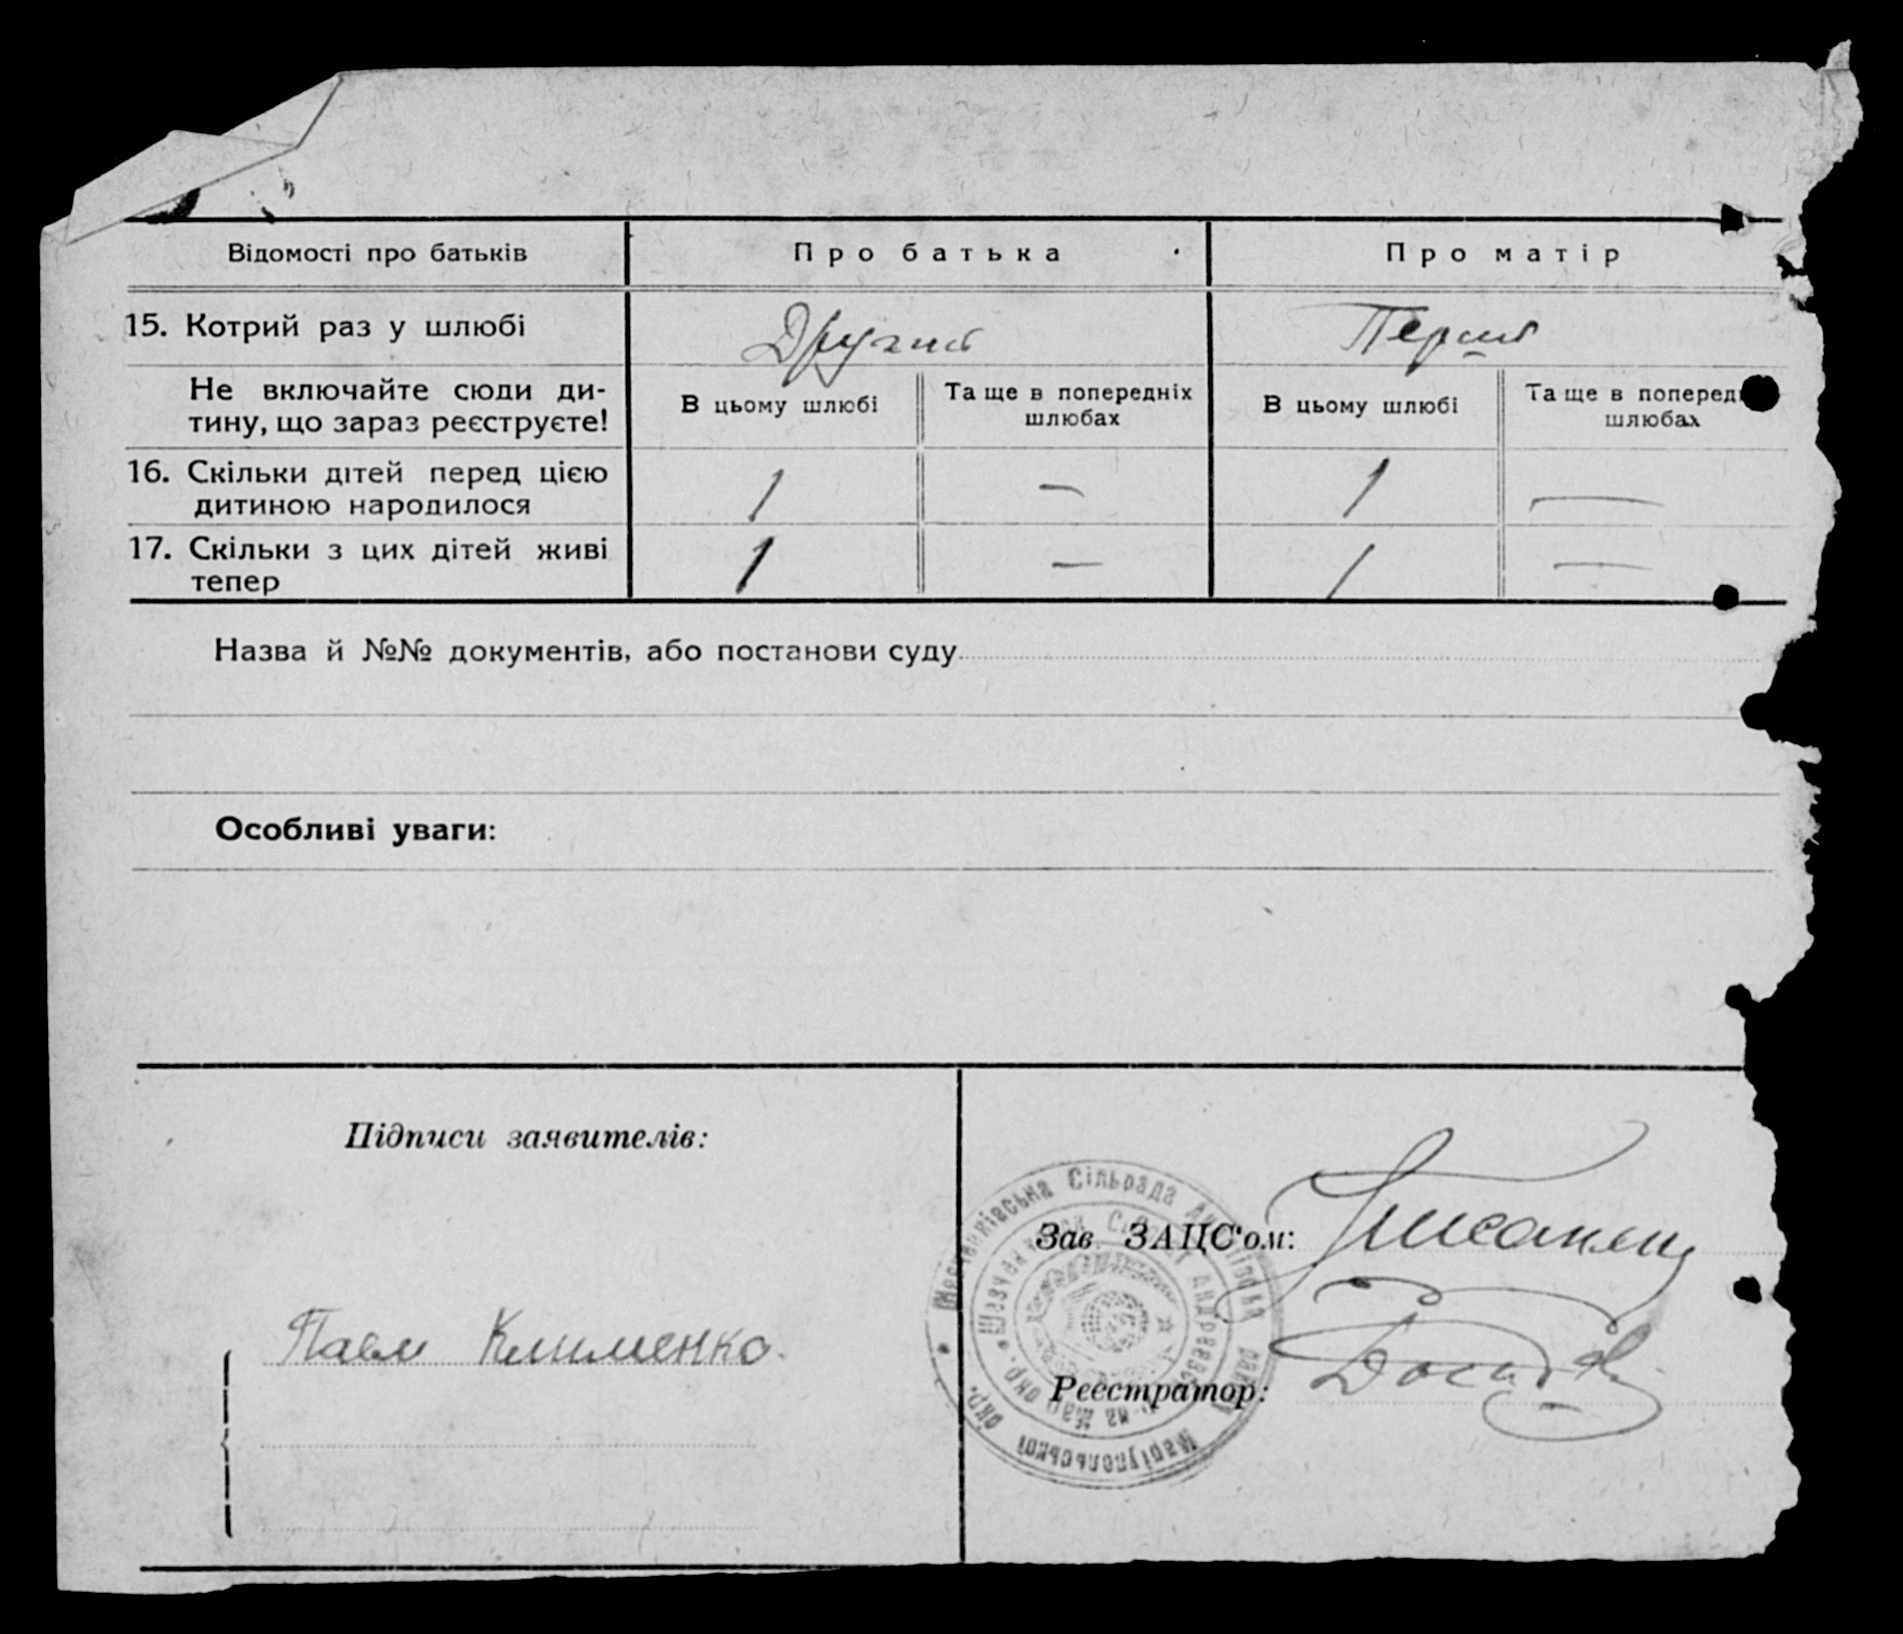 Відомості про батьків
Про батька
Про матір
15. Котрий раз у шлюбі
Другий
Перший
Не включайте сюди ди-
тину, що зараз реєструєте!
В цьому шлюбі
Та ще в попередніх
шлюбах
В цьому шлюбі
Та ще в поперед
шлюбах
16. Скільки дітей перед цією
дитиною народилося
1
—
1
—
17. Скільки з цих дітей живі
тепер
1
—
1
—
Назва й №№ документів, або постанови суду
Особливі уваги:
Підписи заявителів:
Клименко
Зав ЗАЦС'ом:
Реєстратор:
Сільрада
Маріупольської окр.